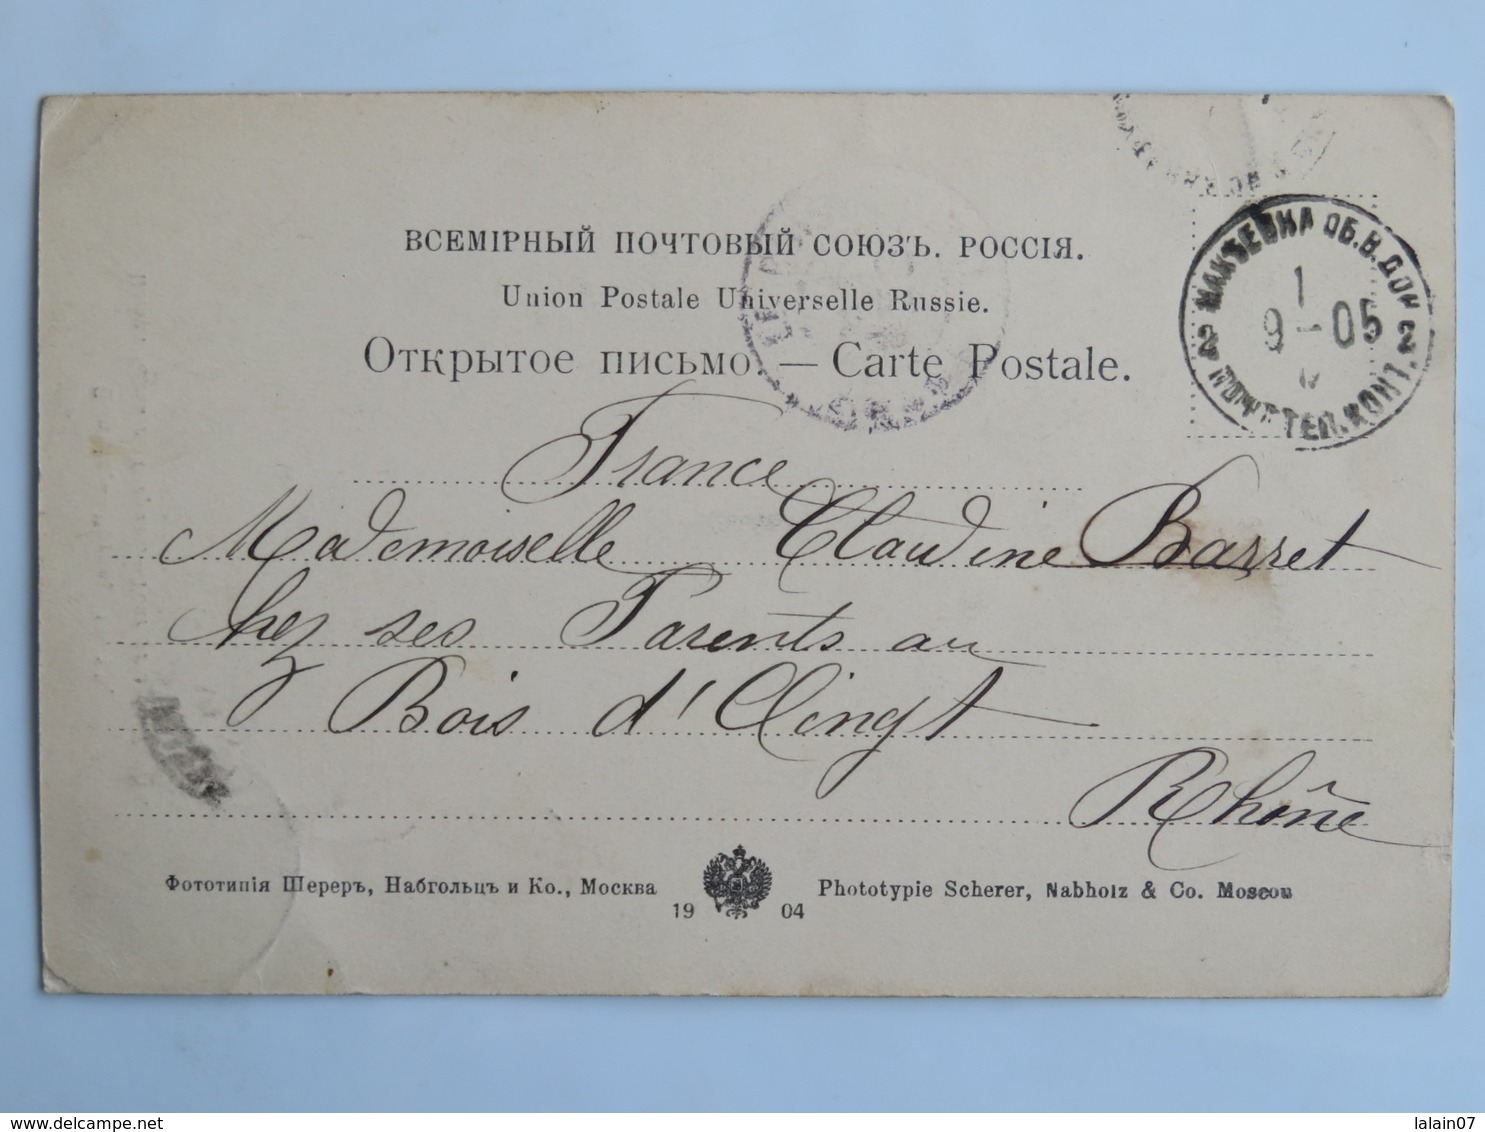 ВСЕМІРНЫЙ ПОЧТОВЫЙ СОЮЗЪ. РОССІЯ.
Union Postale Universelle Russie.
Открытое письмо. — Carte Postale.
МАКѢЕВКА ОБ.В.ДОН
1
9-05
2 2
ПОЧТ ТЕЛ.КОНТ.
France
Mademoiselle Claudine Barret
chez ses Parents au
Bois d'Oingt
Rhône
Фототипія Шереръ, Набгольцъ и Ко., Москва
19 04
Phototypie Scherer, Nabholz & Co. Moscou
delcampe.net
lalain07